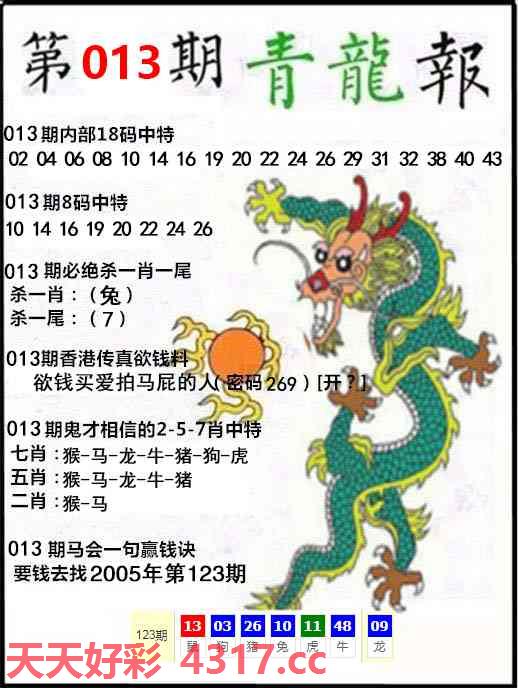 第013期青龍報
013期内部18码中特
02 04 06 08 10 14 16 19 20 22 24 26 29 31 32 38 40 43
013期8码中特
10 14 16 19 20 22 24 26
013期必绝杀一肖一尾
杀一肖：(兔)
杀一尾：(7)
013期香港传真欲钱料
欲钱买爱拍马屁的人(密码269)[开？]
013期鬼才相信的2-5-7肖中特
七肖：猴-马-龙-牛-猪-狗-虎
五肖：猴-马-龙-牛-猪
二肖：猴-马
013期马会一句赢钱诀
要钱去找2005年第123期
123期 13 03 26 10 11 48 09
鼠 狗 猪 兔 虎 牛 龙
天天好彩 4317.cc